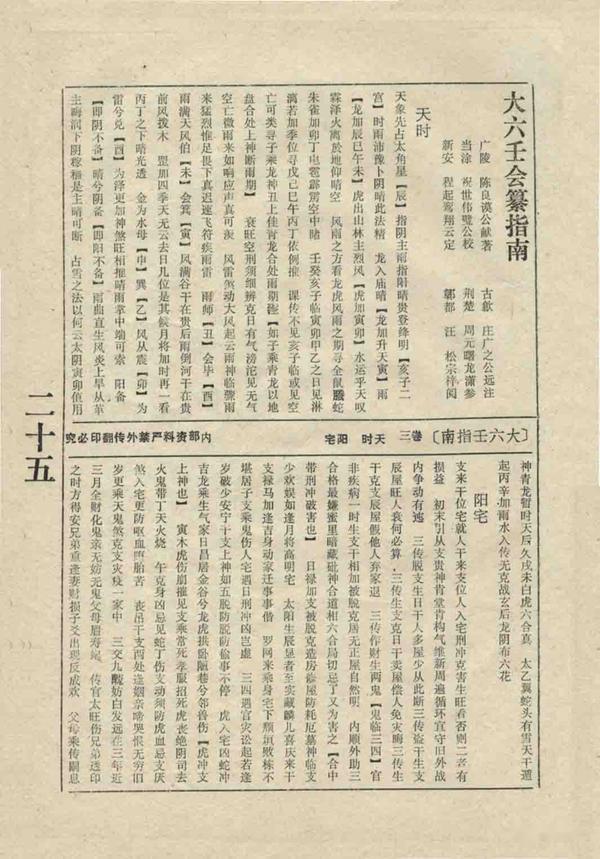 大六壬会纂指南
广陵　陈良谟公献著　古歙　庄广之公远注
当涂　祝世伟璧公校　荆楚　周元曙龙潇参
新安　程起鸾翔云定　鄣都　汪　松宗祥阅
天时
天象先占太角星【辰】指阴主雨指阳晴贵登绛明【亥子二
宫】时雨沛豫卜阴晴此法精　龙入庙晴【龙加升天寅】雨
【龙加辰巳午未】虎出山林主烈风【虎加寅卯】水运乎天叹
霖泽火离於地仰晴空　风雨之方看龙虎风雨之期寻全鼠螣蛇
朱雀加卯丁电雹霹雳空中睹　壬癸亥子临寅卯甲乙之日见淋
漓若加季位寻戊己巳午丙丁依例推　课传不见亥子临或见空
亡可类寻子乘龙神丑上佳青龙合处雨期【如子乘青龙以地
盘合处上神断雨期】　衰旺空刑须细辨克日有气滂沱见无气
空亡微雨来如响应声真可　风雷煞动大风起云雨神临骤雨
来猛烈惟足畏下真迟速飞符疾雨雷　雨师【丑】会毕【酉】
雨满天风伯【未】会箕【寅】风满谷干在贵后雨倒河干在贵
前风拨木　罡加四季天无云去日几位是其候月将加时再一看
丙丁之下晴光透　金为水母【申】巽【乙】风从震【卯】为
雷兮兑【酉】为泽更加神煞旺相推晴雨掌中端可索　阳备
【即阴不备】晴兮阴备【即阳不备】雨曲直生风炎上旱从革
主晦润下阴稼穑是主晴可断　占雪之法以何云太阴寅卯值用
〔大六壬指南〕　卷三　天时　阳宅　内部资料严禁外传翻印必究
神青龙暂时天后久戌未白虎六合真　太乙翼蛇头有雪天干遁
起丙辛加雨水入传无克战玄后龙阴布六花
阳宅
支来干位宅就人干来支位人入宅刑冲克害生旺看否则二者有
损益　初末引从支贵神肯堂肯构气维新周遍循环宜守旧外战
内争动有逃　三传脱支生日干人多屋少从此断三传盗干生支
辰屋旺人衰何必算　三传生支克日干卖屋偿人免灾晦三传生
干克支辰屋假他人弃家退　三传作财生两鬼【鬼临三四】官
非疾病一时生支干相加被脱克居无正屋自然明　内顺外助三
合格最嫌蜜里暗藏砒神合道相六合局切忌了又为害之【合中
带刑冲破害也】　日禄加支被脱克造房修屋防耗厄墓神临支
少欢娱如逢月将高明宅　太阳生辰显者至实藏麟儿喜庆来干
支禄马加逢吉身动家迁事事偕　罗网来乘身宅下颓垣败栋不
堪居子支乘鬼伤人宅遇日刑冲凶岂虚　三四遇官灾讼起若逢
岁破少安宁干支上神如五脱防脱防偷事不停　虎入宅凶蛇冲
吉龙乘生气家日昌居金谷兮龙虎拱卧陋巷兮邻兽伤【虎冲支
上神也】　寅木虎伤崩摧见支乘常死孝服招死虎丧绝阴司去
火鬼带丁天火烧　午克身凶忌见蛇丁伤支动须防虎血忌支辰
煞入宅更防呕血堕胎苦　丧吊干支两处逢姻亲啼哭恨无穷旧
岁更乘天鬼煞克支灾疫一家中　三交九酸妨白发远在三年近
三月全财化鬼亲无妨无鬼父母眉寿　传官太旺伤兄弟透印
之时方得安兄弟重逢妻财损子爻出现反成欢　父母乘传嗣息
二十五